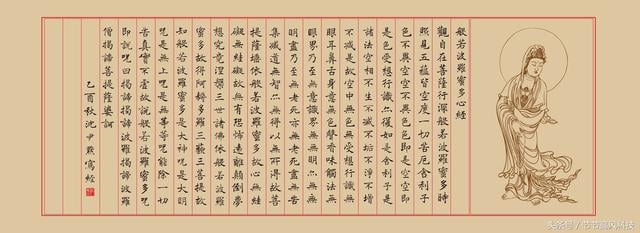 般若波羅蜜多心經
觀自在菩薩行深般若波羅蜜多時
照見五蘊皆空度一切苦厄舍利子
色不異空空不異色色即是空空即
是色受想行識亦復如是舍利子是
諸法空相不生不滅不垢不淨不增
不減是故空中無色無受想行識無
眼耳鼻舌身意無色聲香味觸法無
眼界乃至無意識界無無明亦無無
明盡乃至無老死亦無老死盡無苦
集滅道無智亦無得以無所得故菩
提薩埵依般若波羅蜜多故心無罣
礙無罣礙故無有恐怖遠離顛倒夢
想究竟涅槃三世諸佛依般若波羅
蜜多故得阿耨多羅三藐三菩提故
知般若波羅蜜多是大神咒是大明
咒是無上咒是無等等咒能除一切
苦真實不虛故說般若波羅蜜多咒
即說咒曰揭諦揭諦波羅揭諦波羅
僧揭諦菩提薩婆訶
乙酉秋沈尹默寫經
头条号 / 节节高风科技